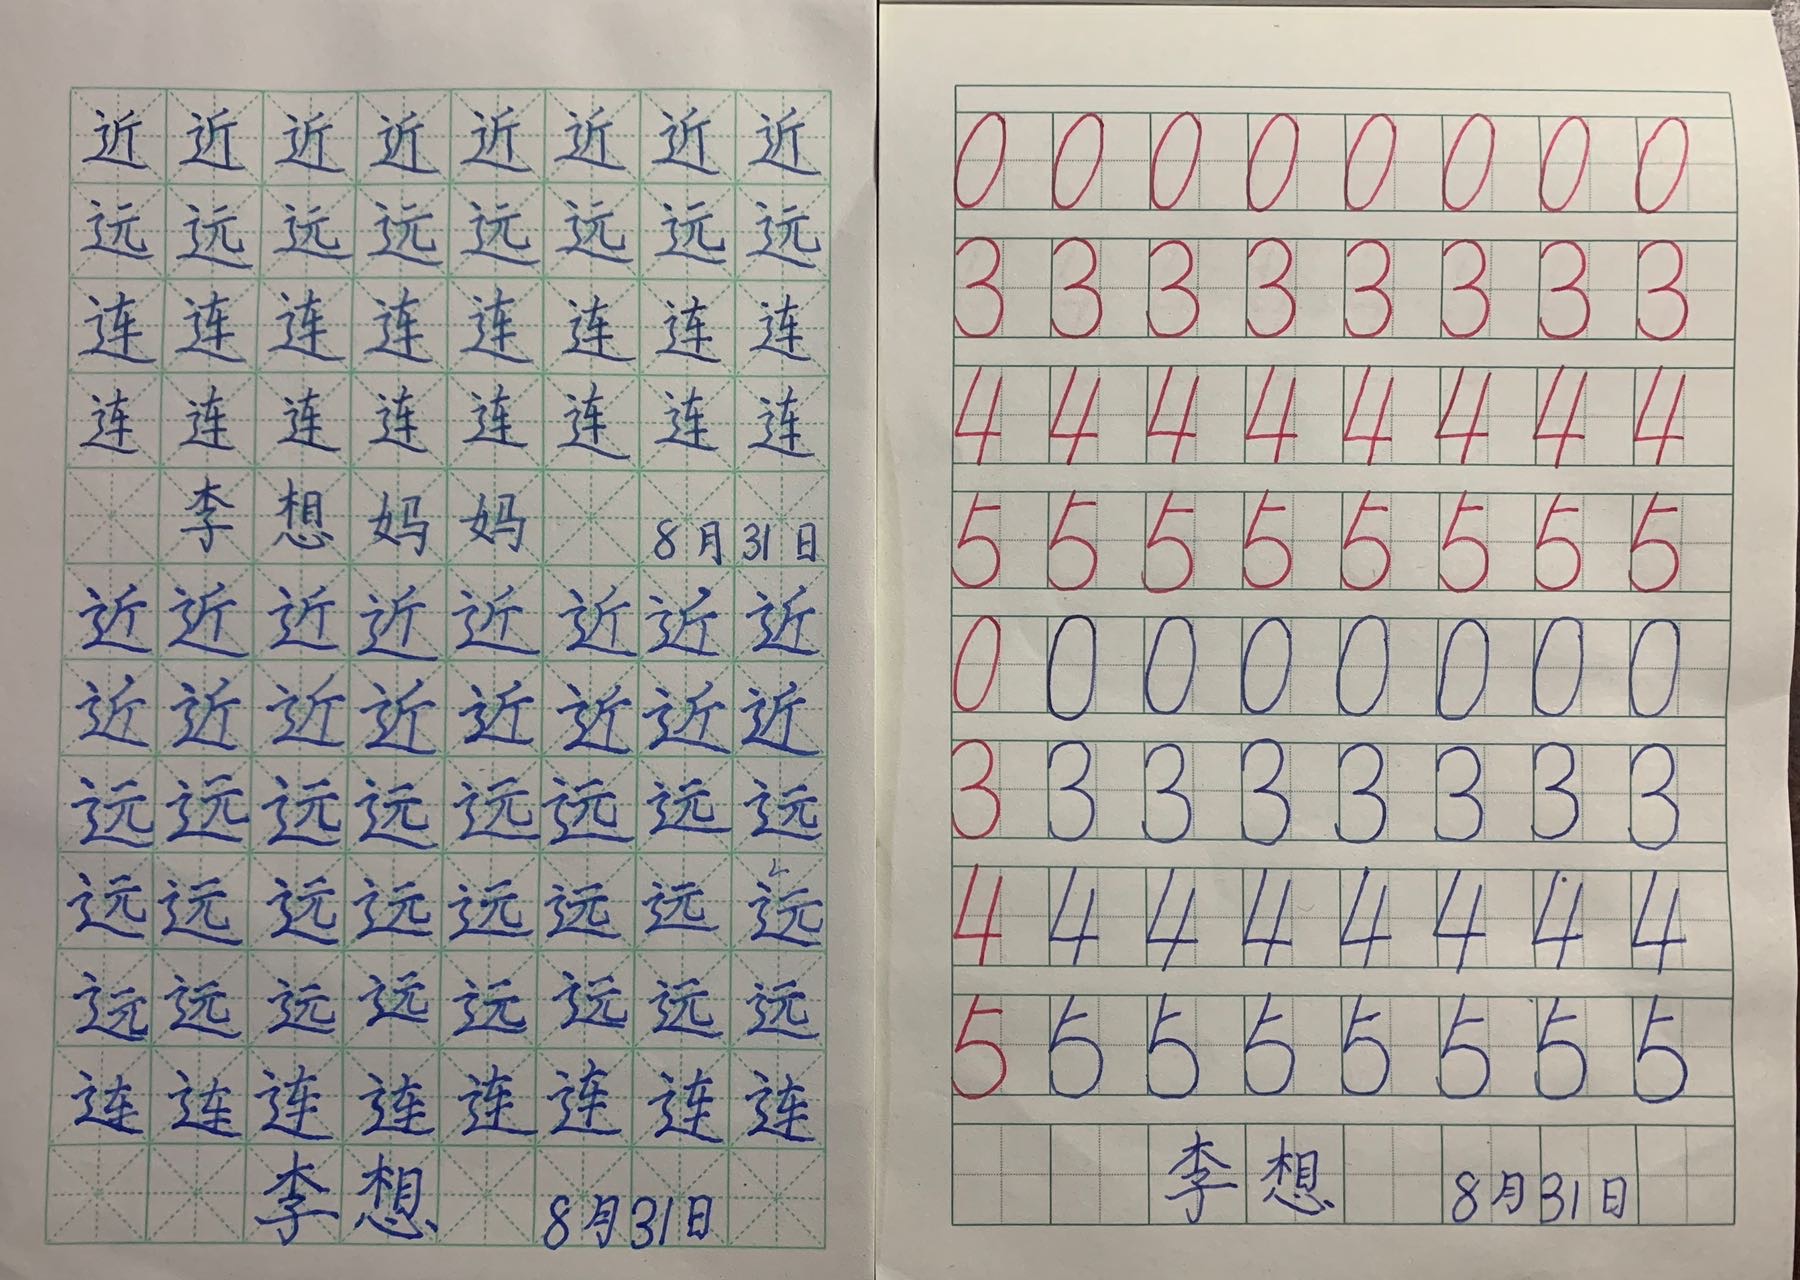 近近近近近近近近
远远远远远远远远
连连连连连连连连
连连连连连连连连
李想妈妈 8月31日
近近近近近近近近
近近近近近近近近
远远远远远远远远
远远远远远远远远
远远远远远远远远
连连连连连连连连
李想 8月31日
0 0 0 0 0 0 0 0
3 3 3 3 3 3 3 3
4 4 4 4 4 4 4 4
5 5 5 5 5 5 5 5
0 0 0 0 0 0 0 0
3 3 3 3 3 3 3 3
4 4 4 4 4 4 4 4
5 5 5 5 5 5 5 5
李想 8月31日